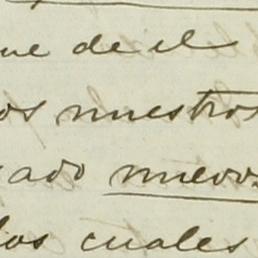 ue de el
os nuestros
ado nuevo
los cuales